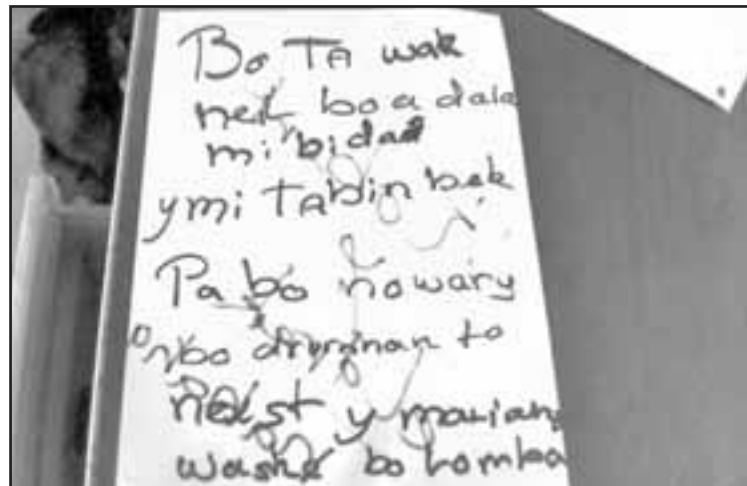 Bo TA wak
nek bo a dala
mi bida
y mi TABin bek
Pa bo no wary
bo drumman to
y mariang
washe bo